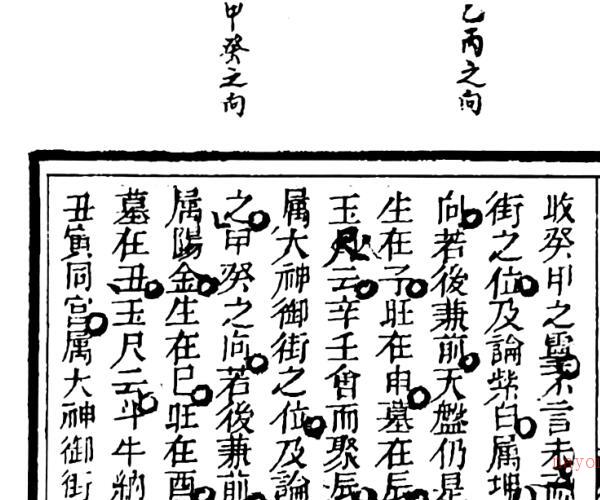 乙丙之向
甲癸之向
收癸甲之靈不言未
街之位及論柴白属坤
向若後兼前天盤仍是
生在子旺在申墓在辰
玉尺云辛壬會而聚辰
属大神御街之位及論
之甲癸之向若後兼前
属陽金生在巳旺在酉
墓在丑玉尺云斗牛納
丑寅同宫属大神御街